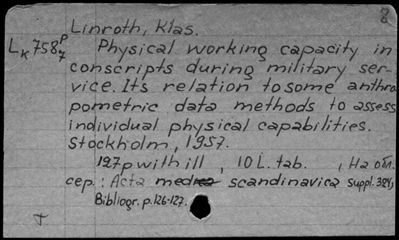 8
Linroth, Klas.
Lк 758 P/7
Physical working capacity in
conscripts during military ser-
vice. Its relation to some anthro
pometric data methods to assess
individual physical capabilities.
Stockholm, 1957.
127 p with ill, 10 L. tab. , На обл.
сер.: Acta medica scandinavica suppl. 324,
Bibliogr. p. 126-127.